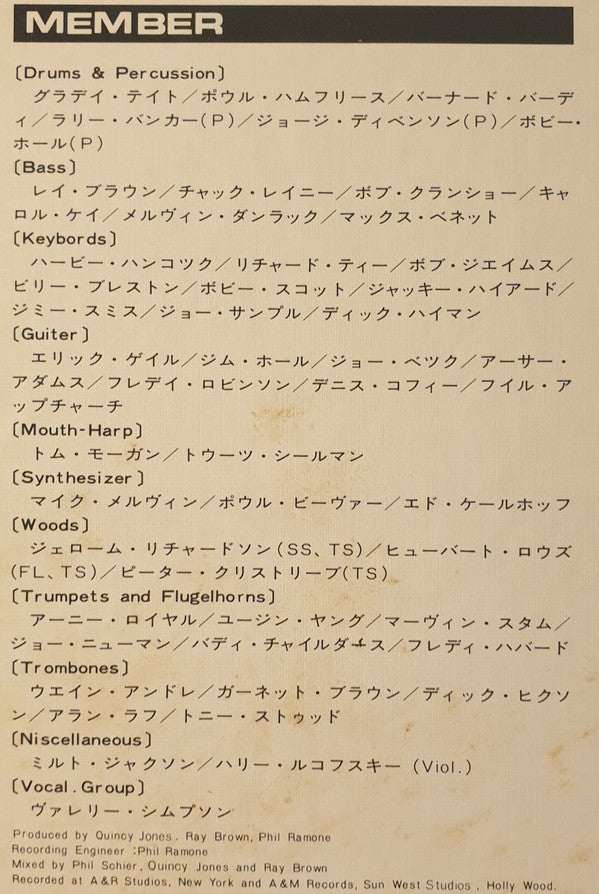 MEMBER
〔Drums & Percussion〕
グラデイ・テイト／ポウル・ハムフリース／バーナード・バーデ
ィ／ラリー・バンカー(P)／ジョージ・ディベンソン(P)／ボビー・
ホール(P)
〔Bass〕
レイ・ブラウン／チャック・レイニー／ボブ・クランショー／キャ
ロル・ケイ／メルヴィン・ダンラック／マックス・ベネット
〔Keybords〕
ハービー・ハンコツク／リチャード・ティー／ボブ・ジエイムス／
ビリー・プレストン／ボビー・スコット／ジャッキー・ハイアード／
ジミー・スミス／ジョー・サンプル／ディック・ハイマン
〔Guiter〕
エリック・ゲイル／ジム・ホール／ジョー・ベツク／アーサー・
アダムス／フレデイ・ロビンソン／デニス・コフィー／フイル・ア
ップチャーチ
〔Mouth-Harp〕
トム・モーガン／トウーツ・シールマン
〔Synthesizer〕
マイク・メルヴィン／ポウル・ビーヴァー／エド・ケールホッフ
〔Woods〕
ジェローム・リチャードソン(SS、TS)／ヒューバート・ロウズ
(FL、TS)／ピーター・クリストリーブ(TS)
〔Trumpets and Flugelhorns〕
アーニー・ロイヤル／ユージン・ヤング／マーヴィン・スタム／
ジョー・ニューマン／バディ・チャイルダース／フレディ・ハバード
〔Trombones〕
ウエイン・アンドレ／ガーネット・ブラウン／ディック・ヒクソ
ン／アラン・ラフ／トニー・ストゥッド
〔Niscellaneous〕
ミルト・ジャクソン／ハリー・ルコフスキー (Viol.)
〔Vocal.Group〕
ヴァレリー・シムプソン
Produced by Quincy Jones. Ray Brown, Phil Ramone
Recording Engineer :Phil Ramone
Mixed by Phil Schier, Quincy Jones and Ray Brown
Recorded at A&R Studios, New York and A&M Records, Sun West Studios, Holly Wood.